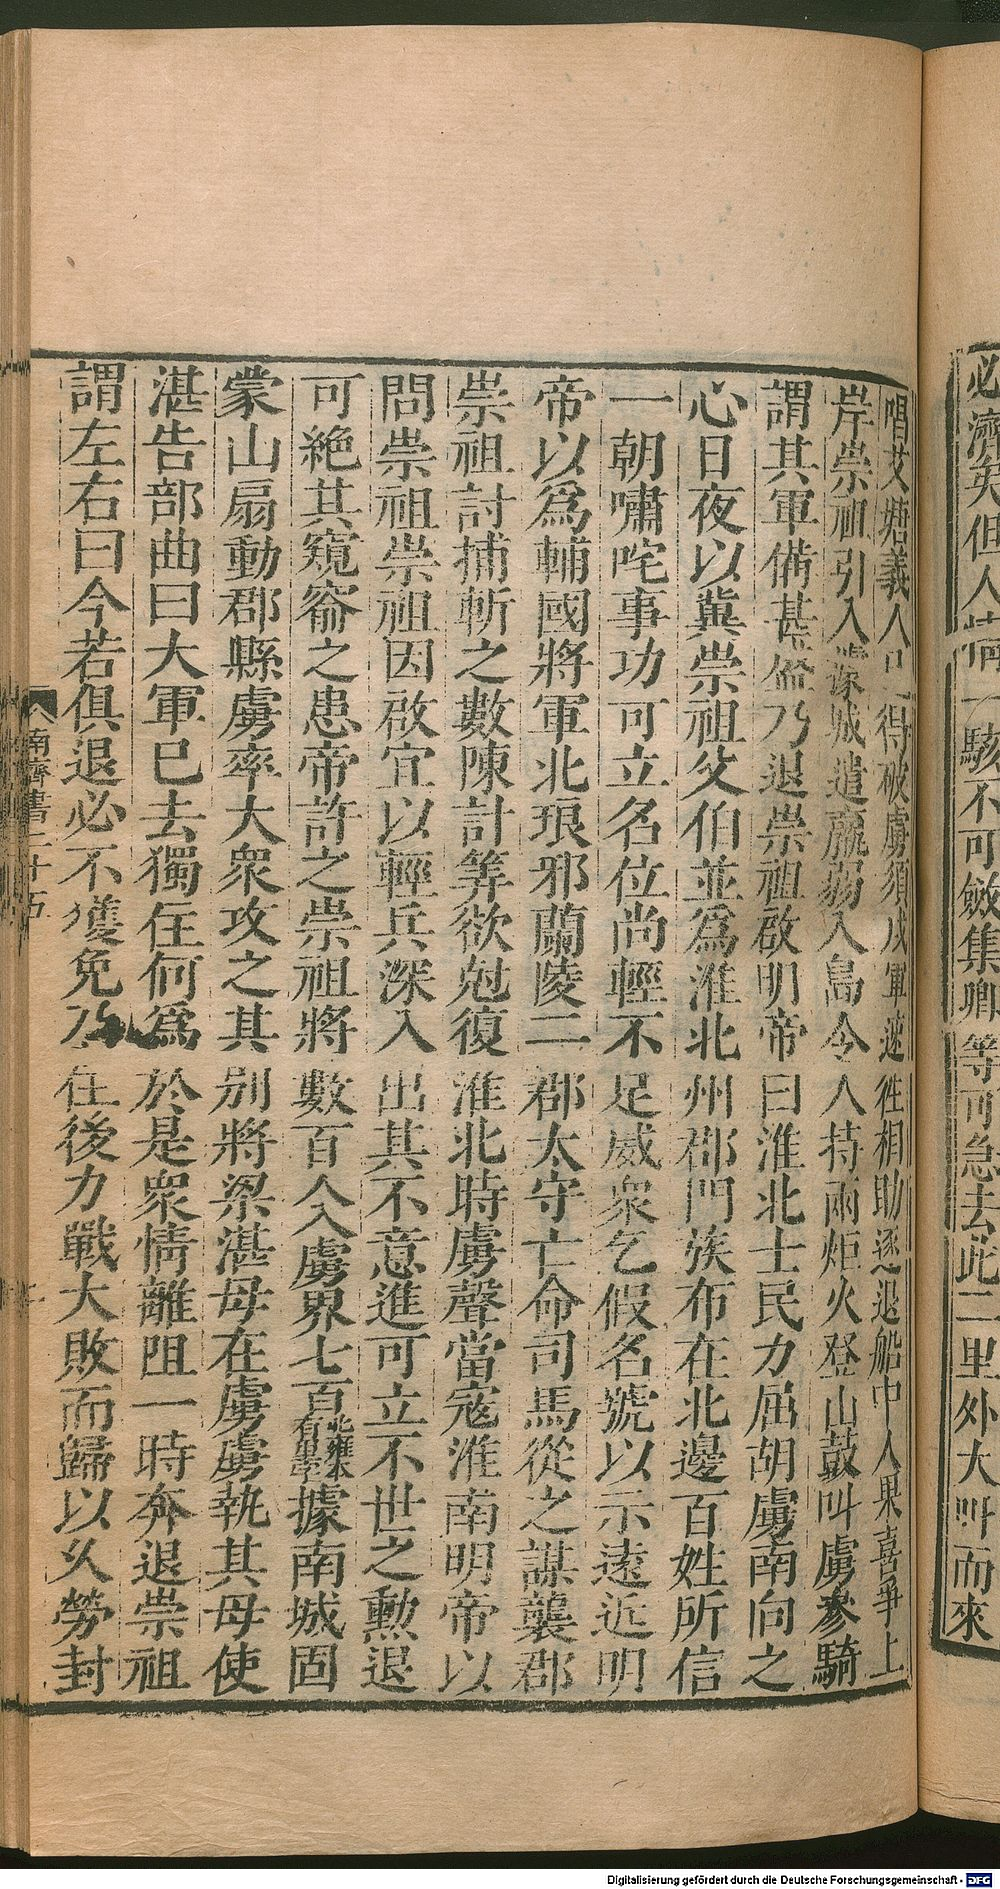 必濟矣但人情一駭不可斂集卿等可急去此二里外大叫而來
唱艾塘義人已得破虜須戍軍速往相助逐退船中人果喜爭上
岸崇祖引入據城遣羸弱入島令人持兩炬火登山鼓叫虜參騎
謂其軍備甚盛乃退崇祖啟明帝曰淮北士民力屈胡虜南向之
心日夜以冀崇祖父伯並爲淮北州郡門族布在北邊百姓所信
一朝嘯咤事功可立名位尚輕不足威衆乞假名號以示遠近明
帝以爲輔國將軍北琅邪蘭陵二郡太守亡命司馬從之謀襲郡
崇祖討捕斬之數陳計筭欲尅復淮北時虜聲當寇淮南明帝以
問崇祖崇祖因啟宜以輕兵深入出其不意進可立不世之勳退
可絶其窺窬之患帝許之崇祖將數百人入虜界七百北雍本有里字據南城固
蒙山扇動郡縣虜率大衆攻之其別將梁湛母在虜虜執其母使
湛告部曲曰大軍已去獨住何爲於是衆情離阻一時奔退崇祖
謂左右曰今若俱退必不獲免乃住後力戰大敗而歸以久勞封
南齊書二十五